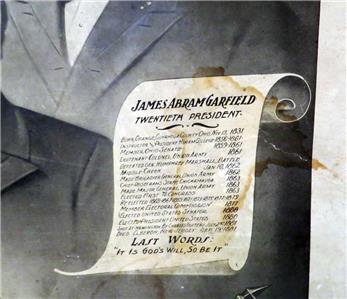 JAMES ABRAM GARFIELD
TWENTIETH PRESIDENT.
BORN, ORANGE, CUYAHOGA COUNTY, OHIO, NOV. 19, 1831
INSTRUCTOR PRESIDENT HIRAM COLLEGE 1856-1861
MEMBER, OHIO SENATE 1859-1861
LIEUTENANT COLONEL UNION ARMY 1861
DEFEATED GEN. HUMPHREY MARSHALL, BATTLE
MIDDLE CREEK JAN. 10, 1862
MADE BRIGADIER GENERAL UNION ARMY 1862
CHIEF ROSECRANS' STAFF, CHICKAMAUGA 1863
MADE MAJOR GENERAL UNION ARMY 1863
ELECTED FIRST TO CONGRESS 1863
REELECTED
MEMBER ELECTORAL COMMISSION 1877
ELECTED UNITED STATES SENATOR 1880
ELECTED PRESIDENT UNITED STATES 1880
SHOT AT WASHINGTON BY CHARLES GUITEAU, JULY 1881
DIED, ELBERON, NEW JERSEY 1881
LAST WORDS:
"IT IS GOD'S WILL, SO BE IT"